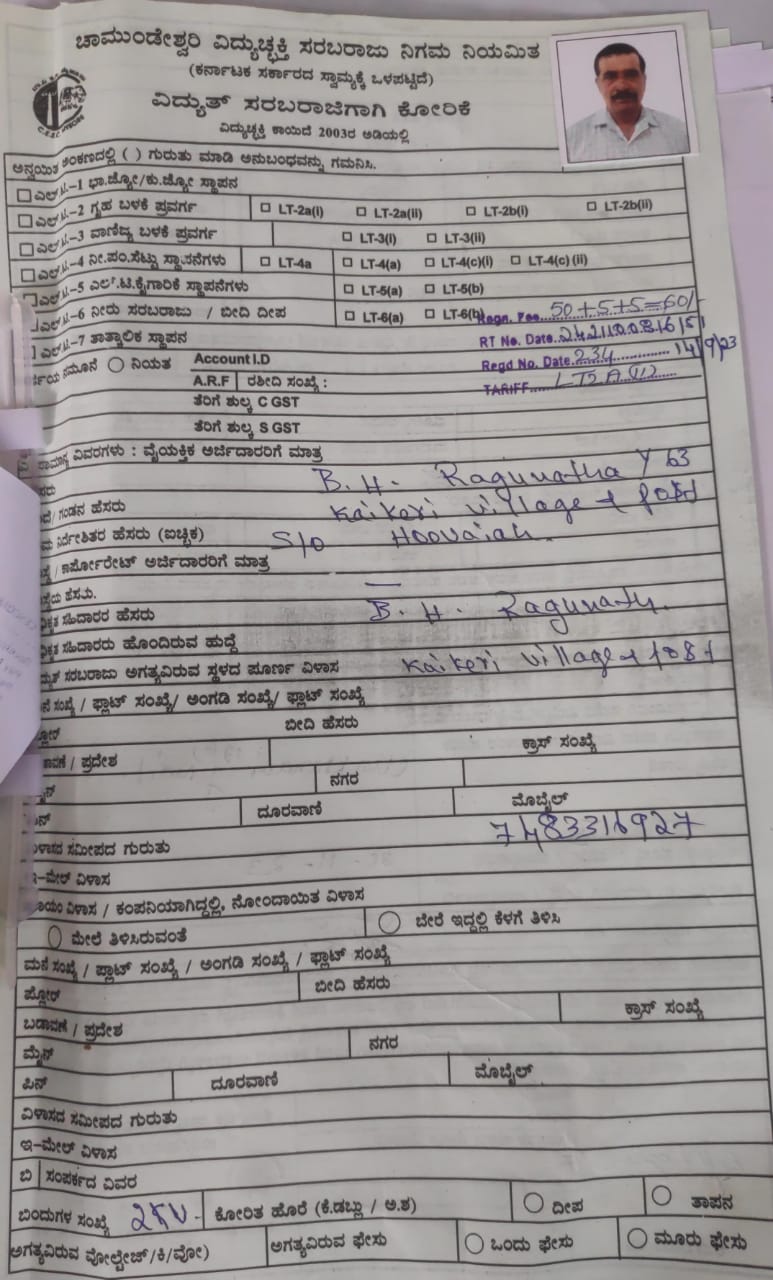 ಚಾಮುಂಡೇಶ್ವರಿ ವಿದ್ಯುಚ್ಛಕ್ತಿ ಸರಬರಾಜು ನಿಗಮ ನಿಯಮಿತ
(ಕರ್ನಾಟಕ ಸರ್ಕಾರದ ಸ್ವಾಮ್ಯಕ್ಕೆ ಒಳಪಟ್ಟಿದೆ)
ವಿದ್ಯುತ್ ಸರಬರಾಜಿಗಾಗಿ ಕೋರಿಕೆ
ವಿದ್ಯುಚ್ಛಕ್ತಿ ಕಾಯಿದೆ 2003ರ ಅಡಿಯಲ್ಲಿ
ಅನ್ವಯಿತ ಅಂಕಣದಲ್ಲಿ ( ) ಗುರುತು ಮಾಡಿ ಅನುಬಂಧವನ್ನು ಗಮನಿಸಿ.
ಎಲ್.ಟಿ.-1 ಭಾ.ಜ್ಯೋ/ಕು.ಜ್ಯೋ ಸ್ಥಾಪನ
ಎಲ್.ಟಿ.-2 ಗೃಹ ಬಳಕೆ ಪ್ರವರ್ಗ LT-2a(i) LT-2a(ii) LT-2b(i) LT-2b(ii)
ಎಲ್.ಟಿ.-3 ವಾಣಿಜ್ಯ ಬಳಕೆ ಪ್ರವರ್ಗ LT-3(i) LT-3(ii)
ಎಲ್.ಟಿ.-4 ನೀ.ಪಂ.ಸೆಟ್ಟು ಸ್ಥಾಪನೆಗಳು LT-4a LT-4(a) LT-4(c)(i) LT-4(c) (ii)
ಎಲ್.ಟಿ.-5 ಎಲ್.ಟಿ.ಕೈಗಾರಿಕೆ ಸ್ಥಾಪನೆಗಳು LT-5(a) LT-5(b)
ಎಲ್.ಟಿ.-6 ನೀರು ಸರಬರಾಜು / ಬೀದಿ ದೀಪ LT-6(a) LT-6(b)
Regn. Fee 50+5+5=60/-
ಎಲ್.ಟಿ.-7 ತಾತ್ಕಾಲಿಕ ಸ್ಥಾಪನ
RT No. Date
ನಮೂನೆ ನಿಯತ Account I.D
Regd No. Date 234 14/9/23
A.R.F ರಶೀದಿ ಸಂಖ್ಯೆ :
TARIFF
ತೆರಿಗೆ ಶುಲ್ಕ C GST
ತೆರಿಗೆ ಶುಲ್ಕ S GST
ವಿವರಗಳು : ವೈಯಕ್ತಿಕ ಅರ್ಜಿದಾರರಿಗೆ ಮಾತ್ರ
B. H. Ragunatha Y 63
ಗಂಡನ ಹೆಸರು Kaikeri village & post
ನಿರ್ದೇಶಿತರ ಹೆಸರು (ಐಚ್ಛಿಕ) S/o Hoovaiah.
ಕಾರ್ಪೋರೇಟ್ ಅರ್ಜಿದಾರರಿಗೆ ಮಾತ್ರ
ಸಹಿದಾರರ ಹೆಸರು B. H. Ragunath.
ಸಹಿದಾರರು ಹೊಂದಿರುವ ಹುದ್ದೆ
ಸರಬರಾಜು ಅಗತ್ಯವಿರುವ ಸ್ಥಳದ ಪೂರ್ಣ ವಿಳಾಸ Kaikeri village & post
ಸಂಖ್ಯೆ / ಫ್ಲಾಟ್ ಸಂಖ್ಯೆ/ ಅಂಗಡಿ ಸಂಖ್ಯೆ/ ಫ್ಲಾಟ್ ಸಂಖ್ಯೆ
ಬೀದಿ ಹೆಸರು
/ ಪ್ರದೇಶ ಕ್ರಾಸ್ ಸಂಖ್ಯೆ
ನಗರ
ದೂರವಾಣಿ ಮೊಬೈಲ್
7483316927
ಸಮೀಪದ ಗುರುತು
ಇ-ಮೇಲ್ ವಿಳಾಸ
ವಿಳಾಸ / ಕಂಪನಿಯಾಗಿದ್ದಲ್ಲಿ, ನೋಂದಾಯಿತ ವಿಳಾಸ
ಮೇಲೆ ತಿಳಿಸಿರುವಂತೆ ಬೇರೆ ಇದ್ದಲ್ಲಿ ಕೆಳಗೆ ತಿಳಿಸಿ
ಮನೆ ಸಂಖ್ಯೆ / ಪ್ಲಾಟ್ ಸಂಖ್ಯೆ / ಅಂಗಡಿ ಸಂಖ್ಯೆ / ಫ್ಲಾಟ್ ಸಂಖ್ಯೆ
ಫ್ಲೋರ್ ಬೀದಿ ಹೆಸರು
ಬಡಾವಣೆ / ಪ್ರದೇಶ ಕ್ರಾಸ್ ಸಂಖ್ಯೆ
ಮೈನ್ ನಗರ
ಪಿನ್ ದೂರವಾಣಿ ಮೊಬೈಲ್
ವಿಳಾಸದ ಸಮೀಪದ ಗುರುತು
ಇ-ಮೇಲ್ ವಿಳಾಸ
ಬಿ ಸಂಪರ್ಕದ ವಿವರ
ಬಿಂದುಗಳ ಸಂಖ್ಯೆ ಕೋರಿತ ಹೊರೆ (ಕಿ.ಡಬ್ಲು / ಅ.ಶ) ದೀಪ ತಾಪನ
ಅಗತ್ಯವಿರುವ ವೋಲ್ಟೇಜ್/ಕಿ/ವೋ) ಅಗತ್ಯವಿರುವ ಫೇಸು ಒಂದು ಫೇಸು ಮೂರು ಫೇಸು